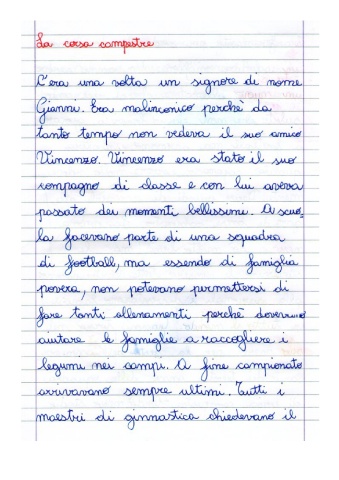 La corsa campestre
C'era una volta un signore di nome
Gianni. Era malinconico perchè da
tanto tempo non vedeva il suo amico
Vincenzo. Vincenzo era stato il suo
compagno di classe e con lui aveva
passato dei momenti bellissimi. A scuo_
la facevano parte di una squadra
di football, ma essendo di famiglia
povera, non potevano permettersi di
fare tanti allenamenti perchè dovevano
aiutare le famiglie a raccogliere i
legumi nei campi. A fine campionato
arrivavano sempre ultimi. Tutti i
maestri di ginnastica chiedevano il